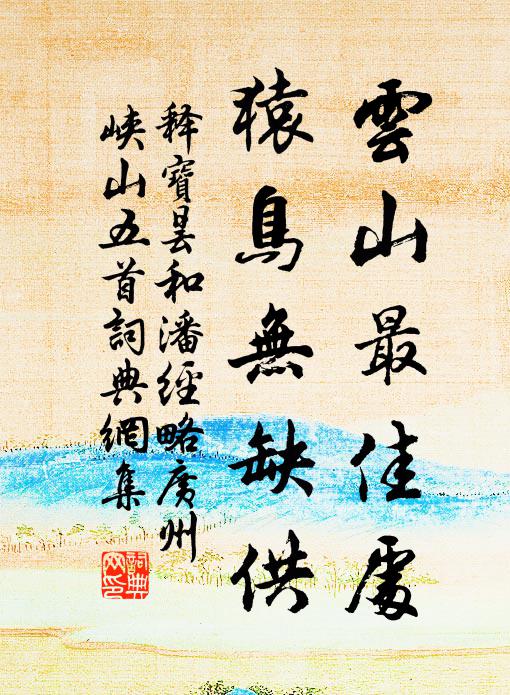 雲山最佳處
猿鳥無缺供
釋寶曇和潘經略廣州
峽山五首詞典網集
詞典網印